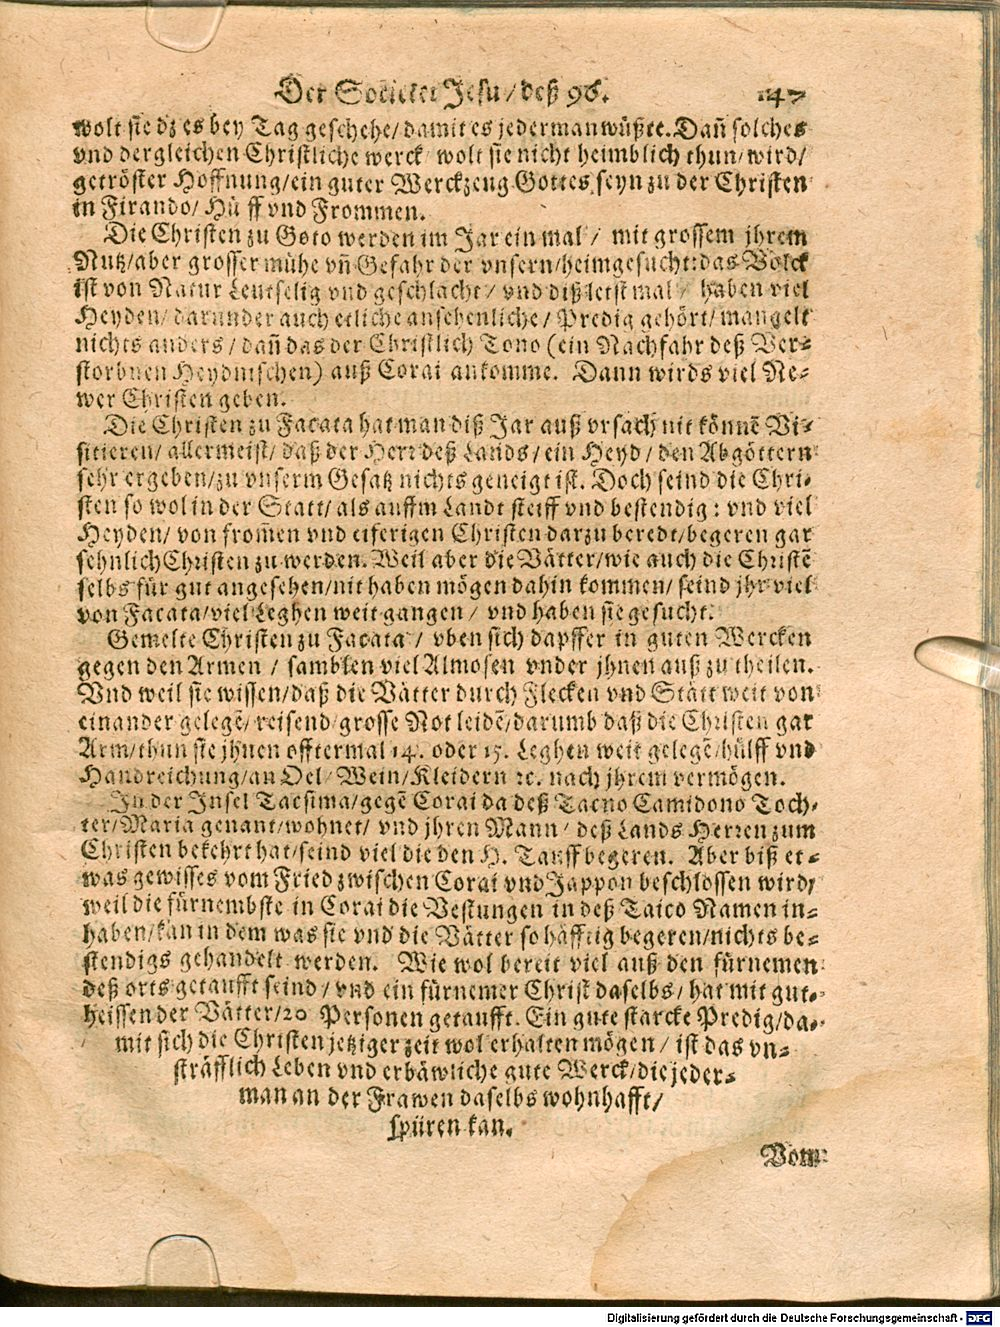 Der Societet Jesu/ deß 96. 147
wolt sie dz es bey Tag geschehe/ damit es jederman wüßte. Dañ solches
vnd dergleichen Christliche werck wolt sie nicht heimblich thun/ wird/
getröster Hoffnung/ ein guter Werckzeug Gottes seyn zu der Christen
in Firando/ Hülff vnd Frommen.
Die Christen zu Goto werden im Jar ein mal/ mit grossem jhrem
Nutz/ aber grosser mühe vñ Gefahr der vnsern/ heimgesucht: das Volck
ist von Natur Leutselig vnd geschlacht/ vnd diß letst mal/ haben viel
Heyden/ darunder auch etliche ansehenliche/ Predig gehört/ mangelt
nichts anders/ dañ das der Christlich Tono (ein Nachfahr deß Ver-
storbnen Heydnischen) auß Corai ankomme. Dann wirds viel Ne-
wer Christen geben.
Die Christen zu Facata hat man diß Jar auß vrsach nit könnē Vi-
sitieren/ allermeist/ daß der Herr deß Lands/ ein Heyd/ den Abgöttern
sehr ergeben/ zu vnserm Gesatz nichts geneigt ist. Doch seind die Chri-
sten so wol in der Statt/ als auffm Landt steiff vnd bestendig: vnd viel
Heyden/ von from̃en vnd eiferigen Christen darzu beredt/ begeren gar
sehnlich Christen zu werden. Weil aber die Vätter/ wie auch die Christē
selbs für gut angesehen/ nit haben mögen dahin kommen/ seind jhr viel
von Facata/ viel Leghen weit gangen/ vnd haben sie gesucht.
Gemelte Christen zu Facata/ vben sich dapffer in guten Wercken
gegen den Armen/ samblen viel Almosen vnder jhnen auß zu theilen.
Vnd weil sie wissen/ daß die Vätter durch Flecken vnd Stätt weit von
einander gelegē/ reisend/ grosse Not leidē/ darumb daß die Christen gar
Arm/ thun sie jhnen offtermal 14. oder 15. Leghen weit gelegē/ hülff vnd
Handreichung/ an Oel/ Wein/ Kleidern ꝛc. nach jhrem vermögen.
In der Insel Tacsima/ gegē Corai da deß Tacno Camidono Toch-
ter/ Maria genant/ wohnet/ vnd jhren Mann/ deß Lands Herren zum
Christen bekehrt hat/ seind viel die den H. Tauff begeren. Aber biß et-
was gewisses vom Fried zwischen Corai vnd Jappon beschlossen wird/
weil die fürnembste in Corai die Vestungen in deß Taico Namen in-
haben/ kan in dem was sie vnd die Vätter so häfftig begeren/ nichts be-
stendigs gehandelt werden. Wie wol bereit viel auß den fürnemen
deß orts getaufft seind/ vnd ein fürnemer Christ daselbs/ hat mit gut-
heissen der Vätter/ 20 Personen getaufft. Ein gute starcke Predig/ da-
mit sich die Christen jetziger zeit wol erhalten mögen/ ist das vn-
sträfflich Leben vnd erbäwliche gute Werck/ die jeder-
man an der Frawen daselbs wohnhafft/
spüren kan.
Vom
Digitalisierung gefördert durch die Deutsche Forschungsgemeinschaft - DFG